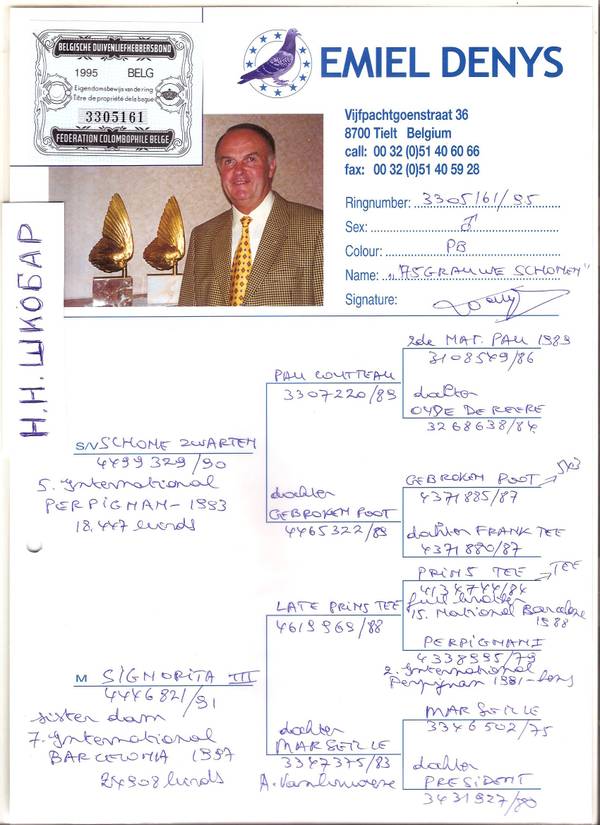 BELGISCHE DUIVENLIEFHEBBERSBOND
1995 BELG
Eigendomsbewijs van de ring
Titre de propriété de la bague
3305161
FEDERATION COLOMBOPHILE BELGE
EMIEL DENYS
Vijfpachtgoenstraat 36
8700 Tielt Belgium
call: 00 32 (0)51 40 60 66
fax: 00 32 (0)51 40 59 28
Ringnumber: 3305161/95
Sex: ♂
Colour: PB
Name: "75 GRAUWE SCHONEN"
Signature:
Н.Н. ШКОБАР
2de NAT. PAU 1989
3108549/86
PAU COUTTEAU
3307220/89
dochter
OUDE DE REERE
3268638/84
S/V SCHONE ZWARTEN
4499329/90
5. International
PERPIGNAN - 1993
18.447 birds
GEBROKEN POOT
4371885/87
dochter
GEBROKEN POOT
4465322/89
dochter FRANK TEE
4371880/87
PRINS TEE → TEE
4134744/84
full brother
15. National Barcelone
1988
LATE PRINS TEE
4619969/88
PERPIGNAN I
4338995/79
2. International
Perpignan 1981 - hens
M SIGNORITA III
4446821/91
sister dam
7. International
BARCELONA 1997
24908 birds
MARSEILLE
3346502/75
dochter
MARSEILLE
3347375/83
dochter
PRESIDENT
3431927/80